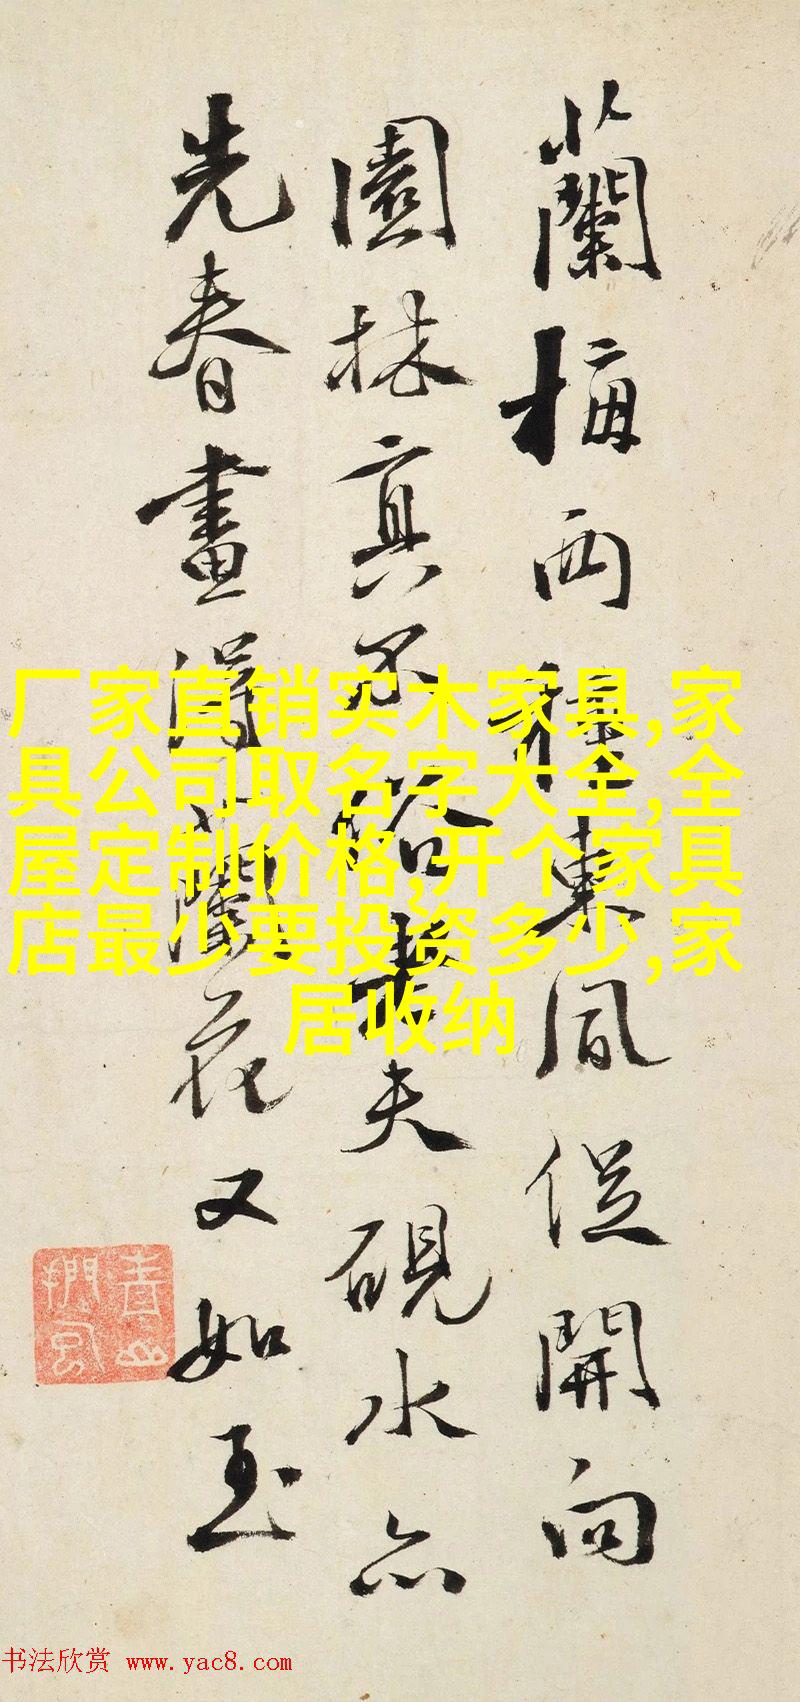 蘭梅两種東風從開向
園林真不俗夫硯水亦
先春畫得蘭花又如玉
厂家直销实木家具,家
具公司取名字大全,全
屋定制价格,开个家具
店最少要投资多少,家
居收纳
书法欣赏 www.yac8.com